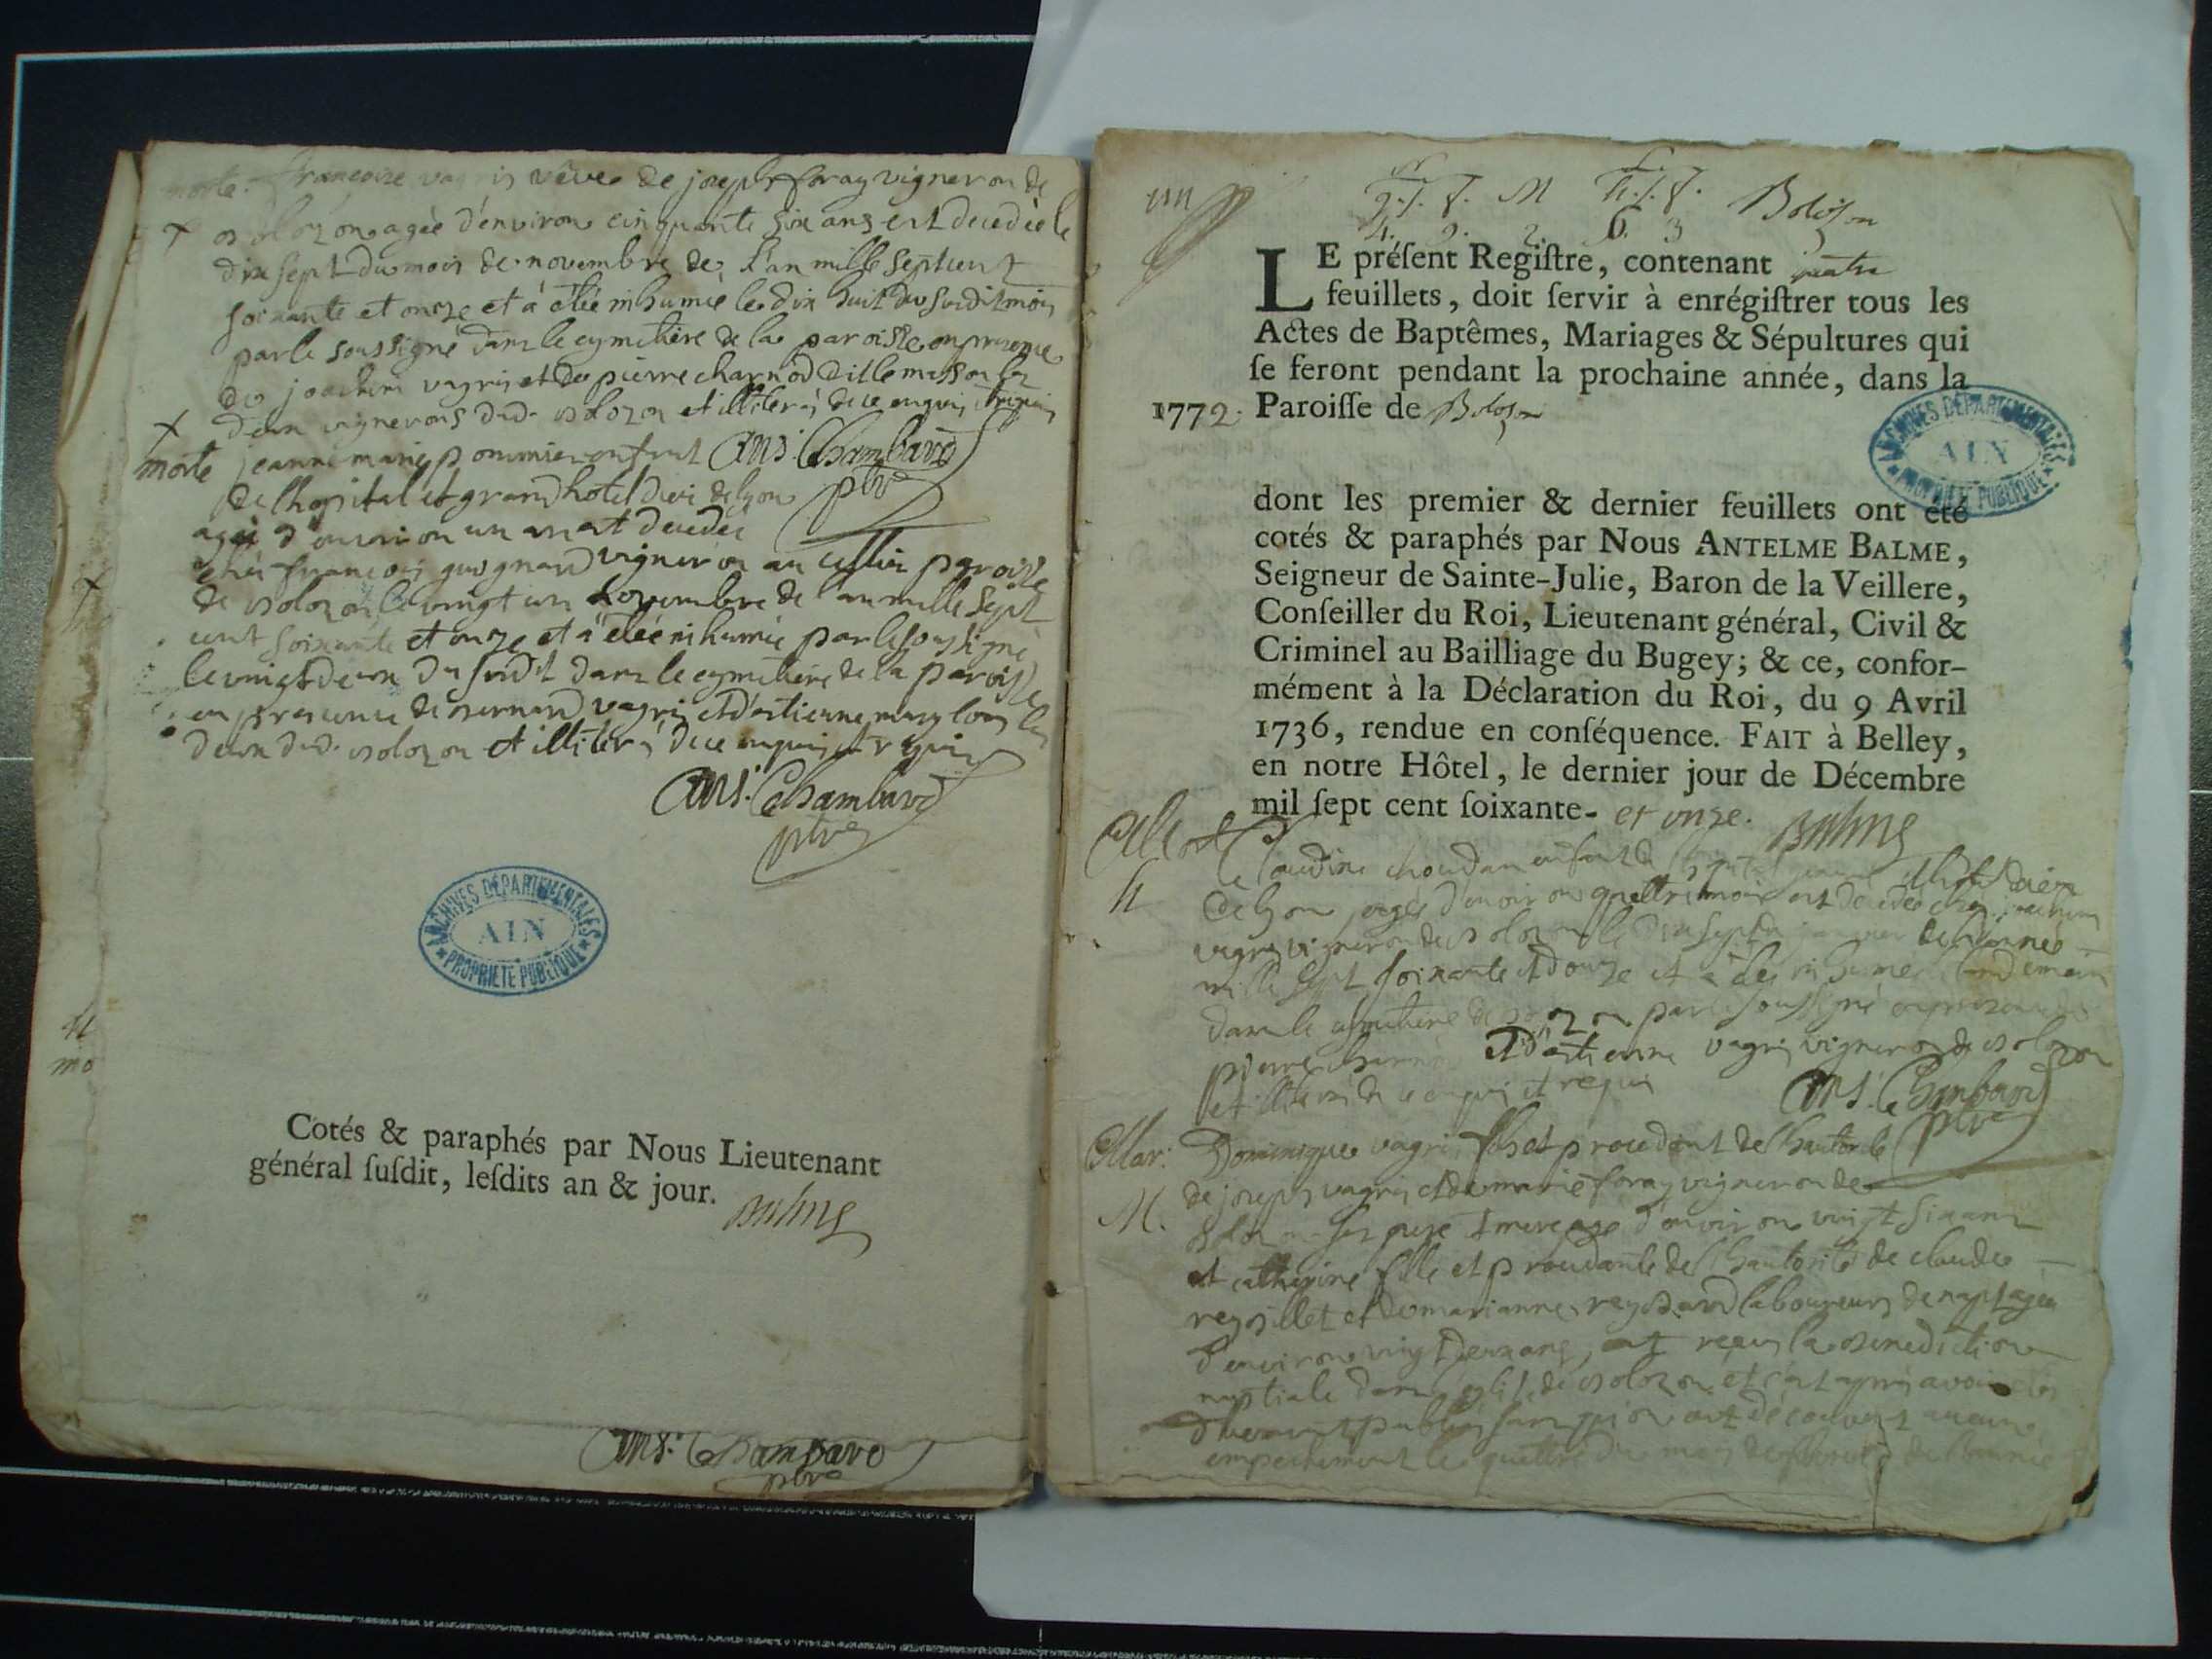 morte. francoise vagris vêve de joseph foray vigneron de
bolozon agée d'environ cinquante six ans est decedée le
dix sept du mois de novembre de l'an mille sept cent
soixante et onze et à étée inhumée le dix huit du susdit mois
par le soussigné dans le cymetiere de la paroisse en presence
de joachim vagris et de pierre charnod dit le masson les
deux vignerons dud. bolozon et illiterés de ce enquis et requis
morte jeanne marie pommier enfant Ans. Chambard
de l'hopital et grand hotel dieu de lyon pbre
agée d'environ un an est decedée
chés françois guignard vigneron au cellier paroisse
de bolozon le vingt un novembre de l'an mille sept
cent soixante et onze et a étée inhumée par le soussigné
le vingt deux du susdit dans le cymetiere de la paroisse
en presence de bernard vagris et d'estienne les
deux dud. bolozon et illiterés de ce enquis et requis
Ans. Chambard
pbre
ARCHIVES DÉPARTEMENTALES
AIN
PROPRIÉTÉ PUBLIQUE
Cotés & paraphés par Nous Lieutenant
général ſuſdit, leſdits an & jour.
Balme
Ans. Chambard
pbre
Bolozon
LE préſent Regiſtre, contenant quatre
feuillets, doit ſervir à enrégiſtrer tous les
Actes de Baptêmes, Mariages & Sépultures qui
ſe feront pendant la prochaine année, dans la
1772. Paroiſſe de Bolozon
ARCHIVES DÉPARTEMENTALES
AIN
PROPRIÉTÉ PUBLIQUE
dont les premier & dernier feuillets ont été
cotés & paraphés par Nous ANTELME BALME,
Seigneur de Sainte-Julie, Baron de la Veillere,
Conſeiller du Roi, Lieutenant général, Civil &
Criminel au Bailliage du Bugey; & ce, confor-
mément à la Déclaration du Roi, du 9 Avril
1736, rendue en conſéquence. FAIT à Belley,
en notre Hôtel, le dernier jour de Décembre
mil ſept cent ſoixante- et onze. Balme
Claudine enfant de
de lyon agée d'environ quattre mois est decedée chez joachim
vagris vigneron de bolozon le dix sept janvier de l'année
mille sept soixante et douze et a étée inhumée le landemain
dans le cymetiere de bolozon par le soussigné en presence de
pierre charnod et d'estienne vagris vigneron de bolozon
et illiterés de ce enquis et requis Ans. Chambard
pbre
Mar: Dominique vagris fils et proudant de l'hautorité
M. de joseph vagris et de marie foray vigneron de
bolozon ses pere et mere agé d'environ vingt six ans
et catherine fille et proudante de l'hautorité de claude
reybillet et de marianne reydard laboureurs de agée
d'environ vingt deux ans, ont reçus la benediction
nuptiale dans l'église de bolozon et c'est aprés avoir étés
duement publiés sans qu'on ait découvert aucun
empechement le quattre du mois de fevrier de l'année